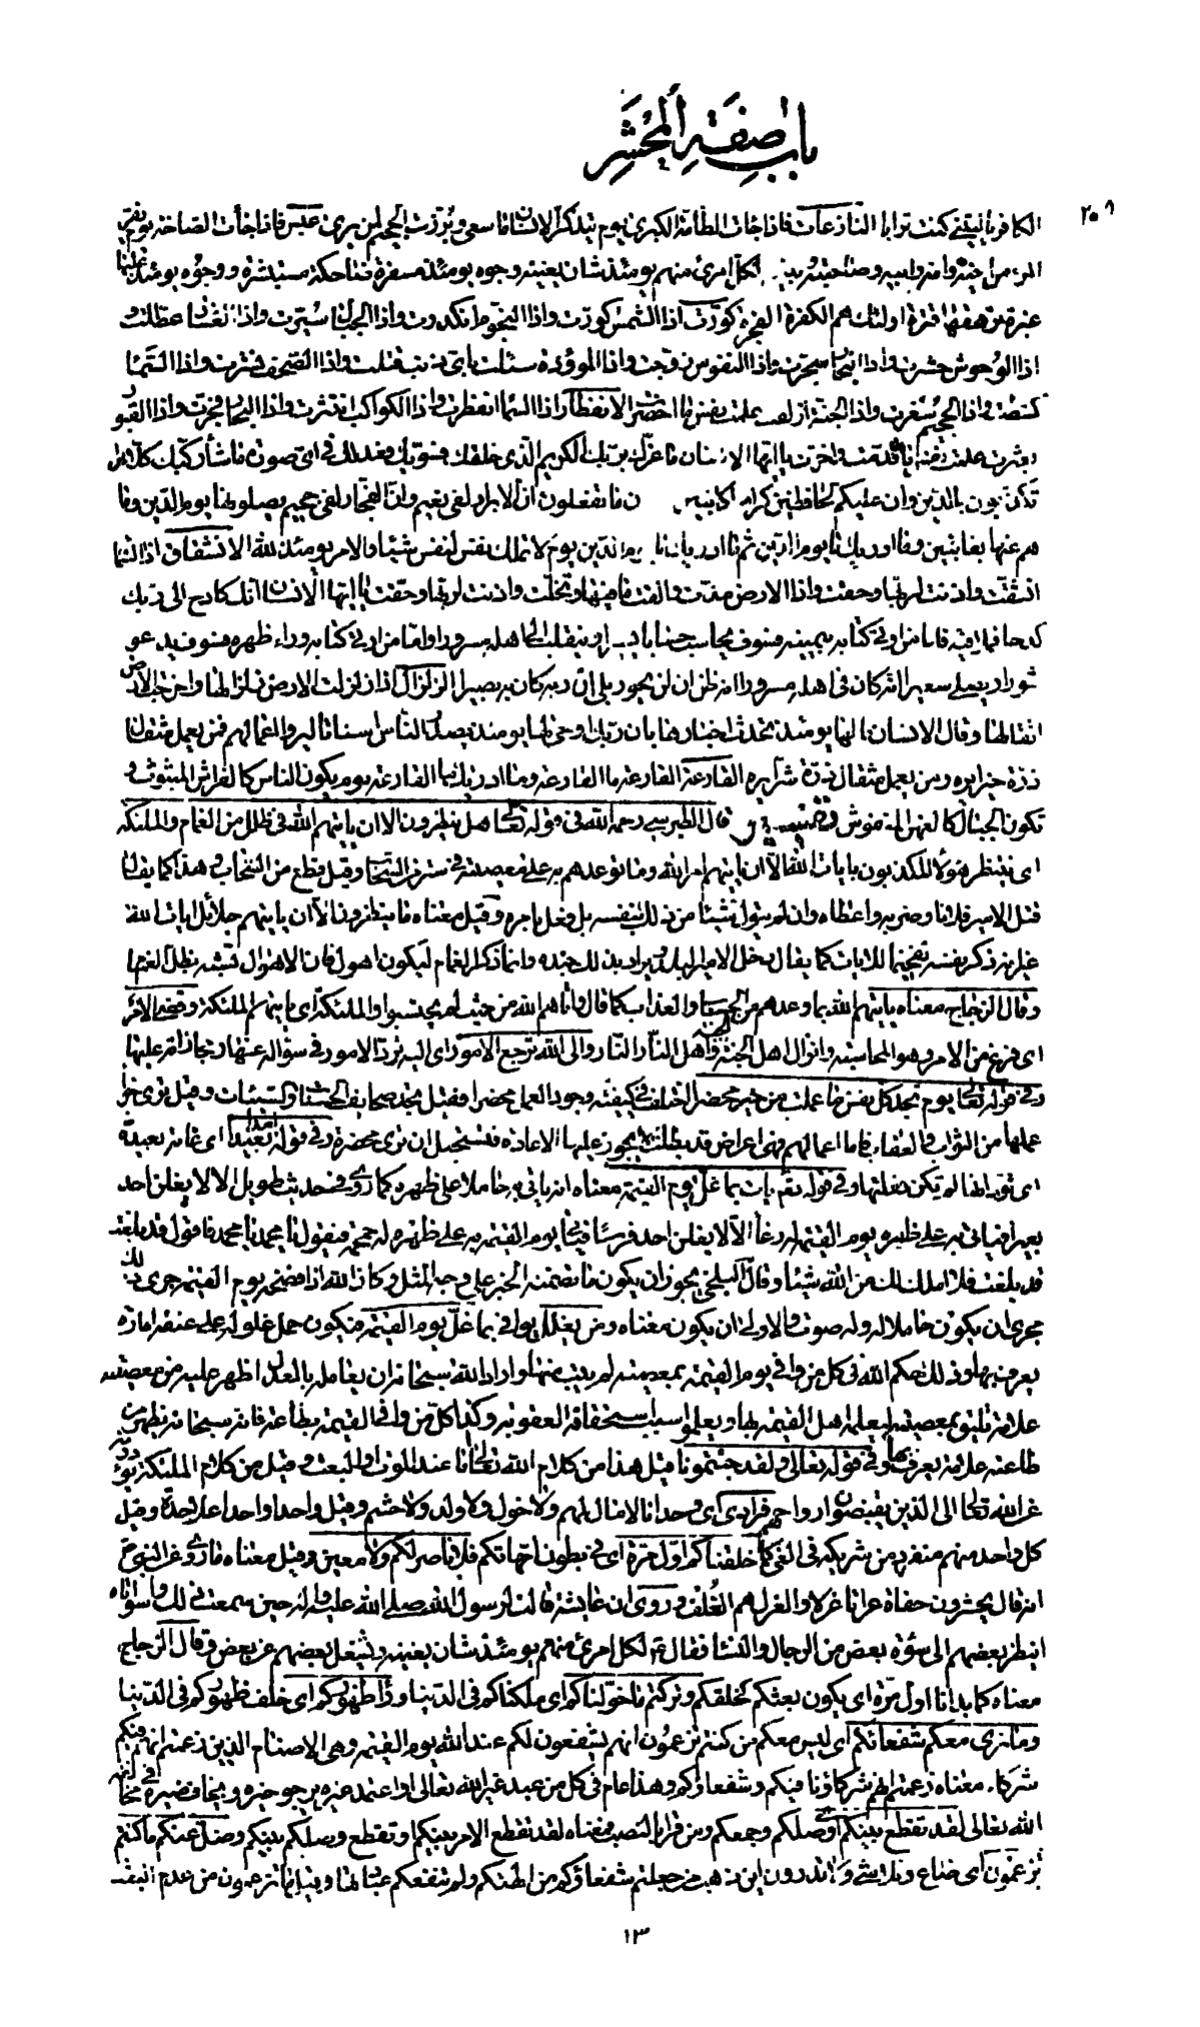 باب صفة المحشر
٢٠٨
الكافر يا ليتني كنت ترابا النازعات فاذا جائت الطامة الكبرى يوم يتذكر الانسان ما سعى وبرزت الجحيم لمن يرى عبس فاذا جائت الصاخة يوم يفر
المرء من اخيه وامه وابيه وصاحبته وبنيه لكل امرئ منهم يومئذ شان يغنيه وجوه يومئذ مسفرة ضاحكة مستبشرة ووجوه يومئذ عليها
غبرة ترهقها قترة اولئك هم الكفرة الفجرة كورت اذا الشمس كورت واذا النجوم انكدرت واذا الجبال سيرت واذا العشار عطلت و
اذا الوحوش حشرت واذا البحار سجرت واذا النفوس زوجت واذا الموؤدة سئلت باي ذنب قتلت واذا الصحف نشرت واذا السماء
كشطت واذا الجحيم سعرت واذا الجنة ازلفت علمت نفس ما احضرت الانفطار اذا السماء انفطرت واذا الكواكب انتثرت واذا البحار فجرت واذا القبور
بعثرت علمت نفس ما قدمت واخرت يا ايها الانسان ما غرك بربك الكريم الذي خلقك فسويك فعدلك في اي صورة ما شاء ركبك كلا بل
تكذبون بالدين وان عليكم لحافظين كراما كاتبين ن ما تفعلون ان الابرار لفي نعيم وان الفجار لفي جحيم يصلونها يوم الدين وما
هم عنها بغائبين وما ادريك ما يوم الدين ثم ما ادريك ما يوم الدين يوم لا تملك نفس لنفس شيئا والامر يومئذ لله الانشقاق اذا السماء
انشقت واذنت لربها وحقت واذا الارض مدت والقت ما فيها وتخلت واذنت لربها وحقت يا ايها الانسان انك كادح الى ربك
كدحا فملاقيه فاما من اوتي كتابه بيمينه فسوف يحاسب حسابا يسيرا وينقلب الى اهله مسرورا واما من اوتي كتابه وراء ظهره فسوف يدعو
ثبورا ويصلى سعيرا انه كان في اهله مسرورا انه ظن ان لن يحور بلى ان ربه كان به بصيرا الزلزال اذا زلزلت الارض زلزالها واخرجت الارض
اثقالها وقال الانسان مالها يومئذ تحدث اخبارها بان ربك اوحى لها يومئذ يصدر الناس اشتاتا ليروا اعمالهم فمن يعمل مثقال
ذرة خيرا يره ومن يعمل مثقال ذرة شرا يره القارعة القارعة ما القارعة وما ادريك ما القارعة يوم يكون الناس كالفراش المبثوث و
تكون الجبال كالعهن المنفوش تفسير قال الطبرسي رحمه الله في قوله تعالى هل ينظرون الا ان ياتيهم الله في ظلل من الغمام والملئكة
اي هل ينتظر هؤلاء المكذبون بايات الله الا ان ياتيهم امر الله وما توعدهم به على معصيته في ستر من السحاب وقيل قطع من السحاب وهذا كما يقال
قتل الامير فلانا وضربه واعطاه وان لم يتول شيئا من ذلك بنفسه بل فعل بامره وقيل معناه ما ينتظرون الا ان ياتيهم جلائل ايات الله
غير انه ذكر نفسه تفخيما للايات كما يقال دخل الامير البلد ويراد بذلك جنده وانما ذكر الغمام ليكون اهول فان الاهوال تشبه بظلل الغمام
وقال الزجاج معناه ياتيهم الله بما وعدهم من الحساب والعذاب كما قال فاتاهم الله من حيث لم يحتسبوا والملئكة اي ياتيهم الملئكة وقضي الامر
اي فرغ من الامر وهو المحاسبة وانزال اهل الجنة الجنة واهل النار النار والى الله ترجع الامور اي اليه ترد الامور في سؤاله عنها ومجازاته عليها
وفي قوله تعالى يوم تجد كل نفس ما عملت من خير محضرا اختلف في كيفية وجود العمل محضرا فقيل تجد صحايف الحسنات والسيئات وقيل ترى جزاء
عملها من الثواب والعقاب فاما اعمالهم فهي اعراض قد بطلت لا يجوز عليها الاعادة فتستحيل ان ترى محضرة وفي قوله امدا بعيدا اي غاية بعيدة
اي تود انها لم تكن فعلتها وفي قوله تعالى يات بما غل يوم القيمة معناه انه ياتي به حاملا على ظهره كما روي في حديث طويل الا لا يغلن احد
بعيرا فياتي به على ظهره يوم القيمة له رغاء الا لا يغلن احد فرسا فياتي يوم القيمة به على ظهره له حمحمة فيقول يا محمد يا محمد فاقول قد بلغت
قد بلغت فلا املك لك من الله شيئا وقال البلخي يجوز ان يكون ما تضمنه الخبر على وجه المثل وكان الله اذا فضحه يوم القيمة جرى ذلك
مجرى ان يكون حاملا له وله صوت والاولى ان يكون معناه ومن يغلل يوافي بما غل يوم القيمة فيكون حمل غلوله على عنقه امارة
يعرف بها وذلك حكم الله في كل من وافى يوم القيمة بمعصية لم يتب منها واراد الله سبحانه ان يعامله بالعدل اظهر عليه من معصيته
علامة تليق بمعصيته ليعلمه اهل القيمة بها ويعلموا سبب استحقاقه العقوبة وكذا كل من وافى القيمة بطاعة فانه سبحانه يظهر من
طاعته علامة يعرف بها وفي قوله تعالى ولقد جئتمونا قيل هذا من كلام الله تعالى اما عند الموت او البعث وقيل من كلام الملئكة يؤدونه
عن الله تعالى الى الذين يقبضون ارواحهم فرادى اي وحدانا لا مال لهم ولا خول ولا ولد ولا حشم وقيل واحدا واحدا على حدة وقيل
كل واحد منهم منفرد من شريكه في الغي كما خلقناكم اول مرة اي في بطون امهاتكم فلا ناصر لكم ولا معين وقيل معناه ما روي عن النبي ص
انه قال يحشرون حفاة عراة غرلا والغرل هم الغلف وروي ان عايشة قالت لرسول الله صلى الله عليه واله حين سمعت ذلك واسوأتاه
اينظر بعضهم الى سوءة بعض من الرجال والنساء فقال ع لكل امرئ منهم يومئذ شان يغنيه ويشغل بعضهم عن بعض وقال الزجاج
معناه كما بداناكم اول مرة اي يكون بعثكم كخلقكم وتركتم ما خولناكم اي ملكناكم في الدنيا وراء ظهوركم اي خلف ظهوركم في الدنيا
وما نرى معكم شفعائكم اي ليس معكم من كنتم تزعمون انهم يشفعون لكم عند الله يوم القيمة وهي الاصنام الذين زعمتم انهم فيكم
شركاء معناه زعمتم انهم شركاؤنا فيكم وشفعاؤكم وهذا عام في كل من عبد غير الله تعالى او اعتمد غيره يرجو خيره ويخاف ضيره في مخالفة
الله تعالى لقد تقطع بينكم اي وصلكم وجمعكم ومن قرا بالنصب فمعناه لقد تقطع الامر بينكم او تقطع وصلكم بينكم وضل عنكم ما كنتم
تزعمون اي ضاع وتلاشى ولا تدرون اين ذهب من جعلتم شفعاؤكم من الهتكم ولم تنفعكم عبادتها وقيل ما تزعمون من عدم البعث
١٣